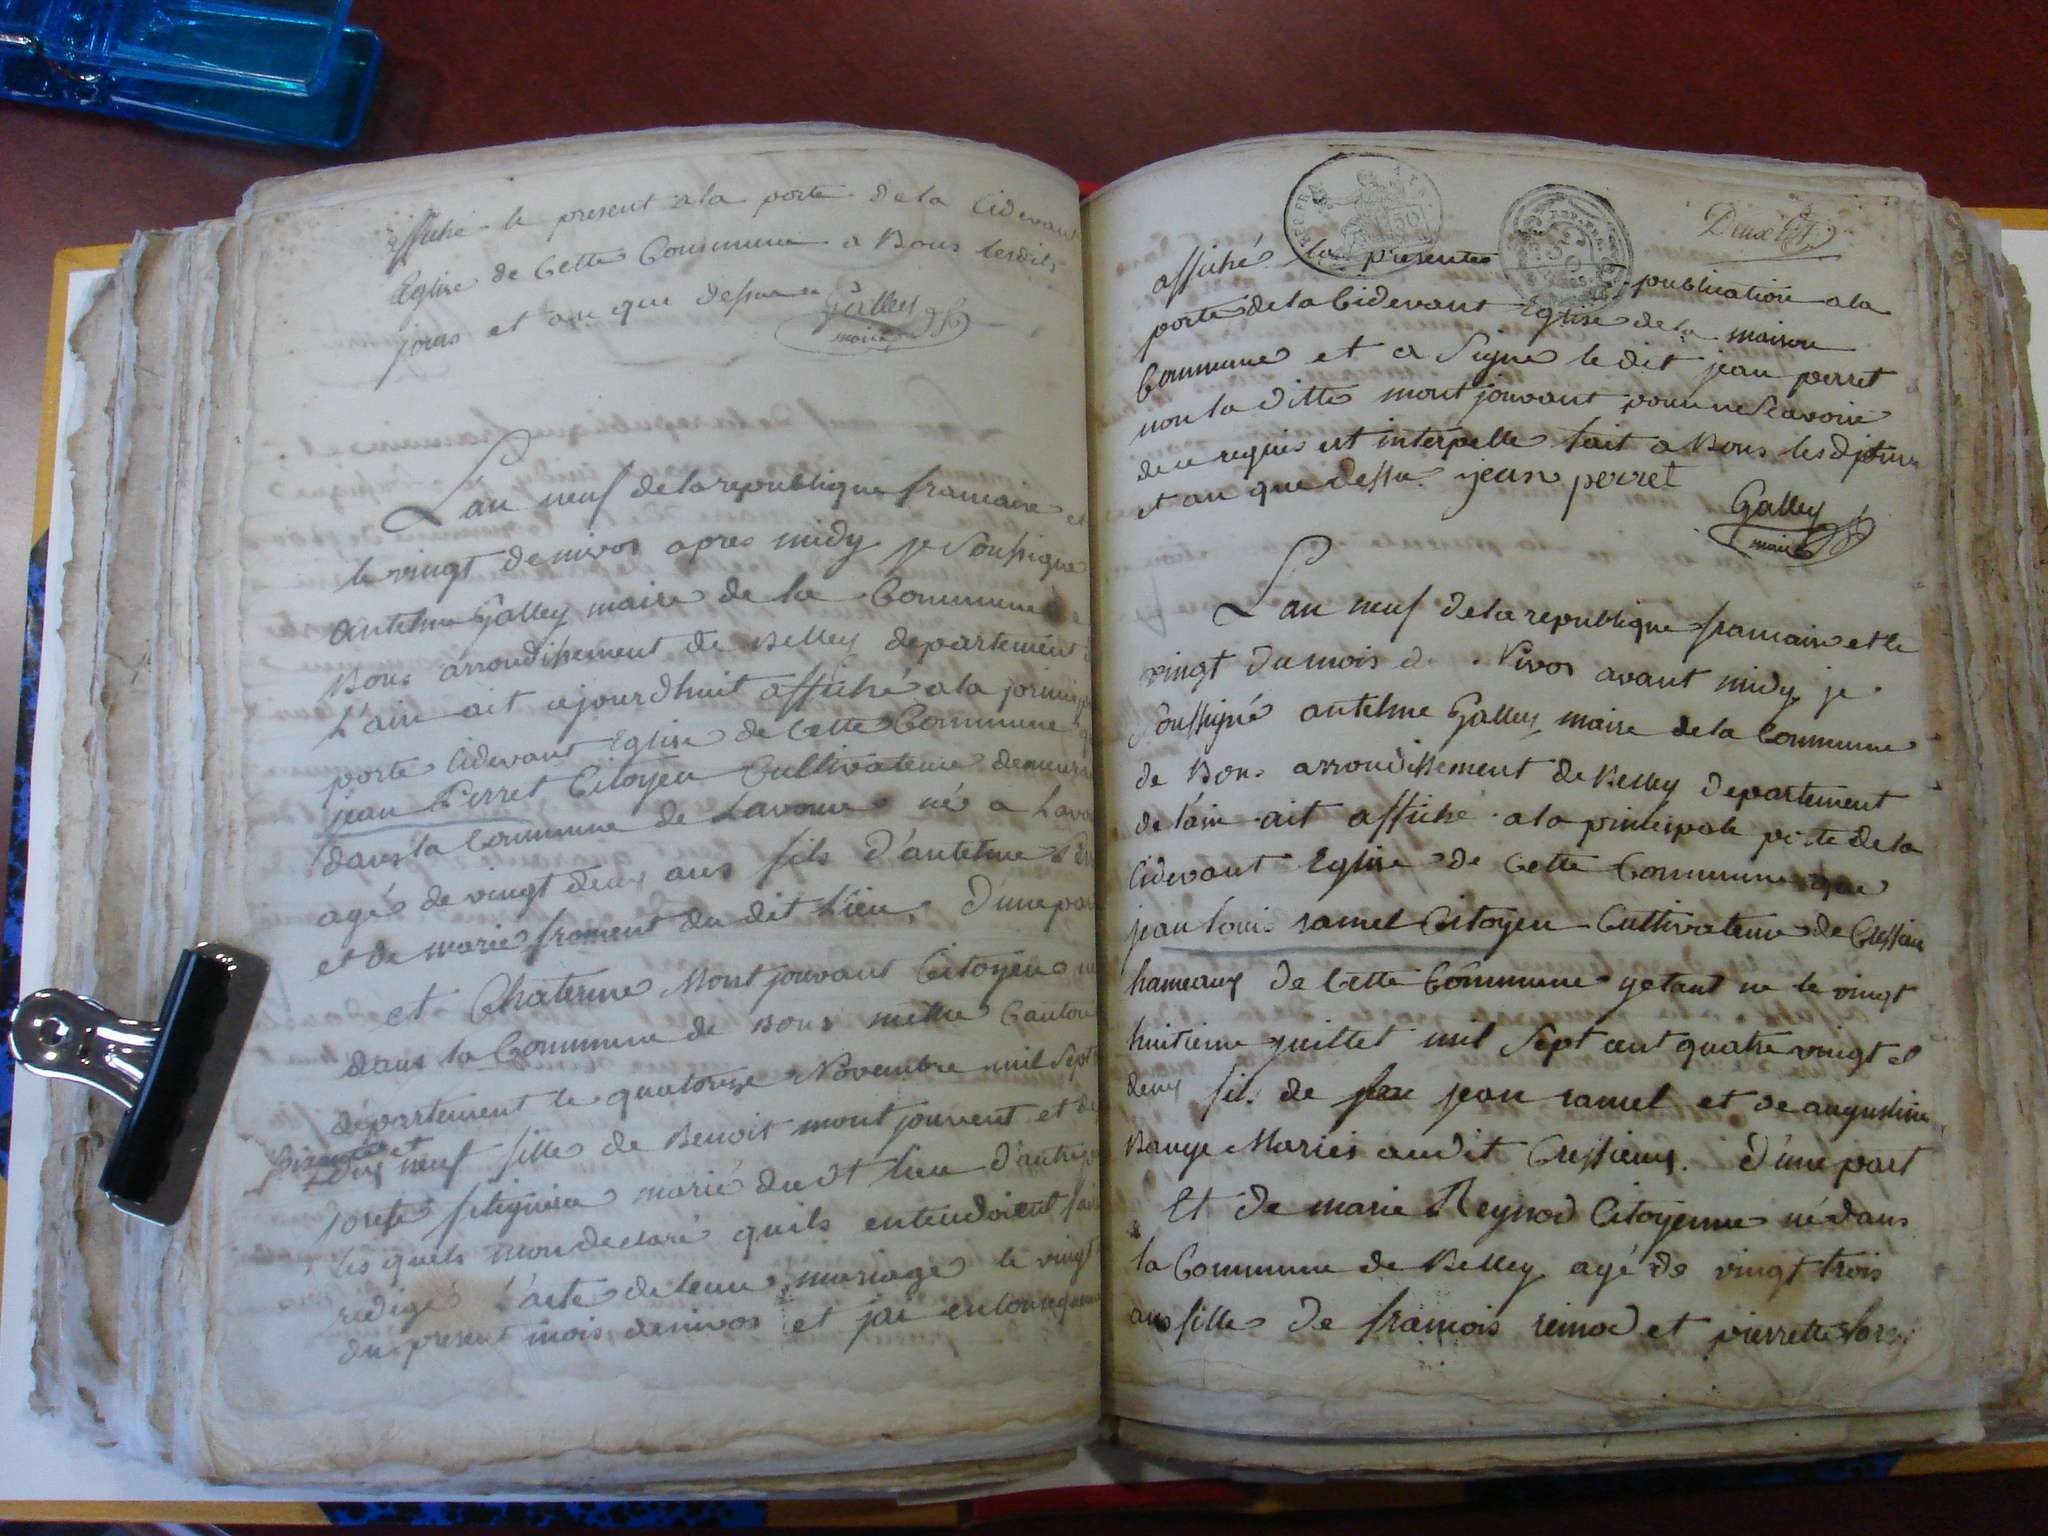 affiché le present a la porte de la Cidevant
Eglise de Cette Commune a Bons lesdits
jours et an que dessus Galley
maire
L'an neuf de la republique francaise et
le vingt de nivos apres midy je Soussigne
antelme Galley maire de la Commune
Bons arrondissement de Belley departement
L'ain ait cejourdhuit affiché a la
porte Cidevant Eglise de Cette Commune
jean Perret Citoyen Cultivateur
dans la Commune de Lavours né a
agé de vingt deux ans fils D'antelme
et de marie froment du dit Lieu. D'une
et Chaterine Montjouvant Citoyen
dans la Commune de Bons même Canton
departement le quatorze Novembre mil Sept
neuf fille de Benoit montjouvent et
marié du dt lieu d'autre
les quels mon declaré quils entendoient
redigé l'acte de leur mariage le vingt
du present mois de nivos et jai
Deux
affiché la presente publication a la
porte de la Cidevant Eglise de la maison
Commune et a Signe le dit jean perret
non la ditte montjouvant pour ne Scavoir
de ce requis est interpelle fait a Bons les d jours
et an que dessu jean perret
Galley
maire
L'an neuf de la republique francaise et le
vingt du mois de Nivos avant midy je
Soussigné antelme Galley maire de la Commune
de Bons arrondissement de Belley departement
de l'ain ait affiché a la principale porte de la
Cidevant Eglise de Cette Commune que
jean louis ramel Citoyen Cultivateur de
hameaux de Cette Commune yetant ne le vingt
huitieme juillet mil Sept cent quatre vingt et
deux fils de jean ramel et de augustine
Bauge Mariés audit Cressieux. D'une part
Et de marie Reynod Citoyenne né dans
la Commune de Belley agé de vingt trois
ans fille de francois reinod et pierrette